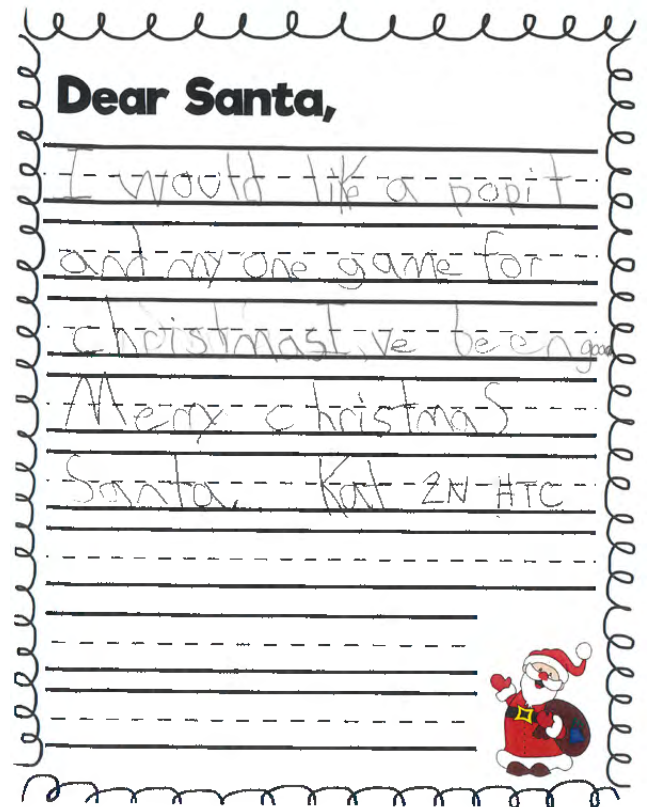 Dear Santa,
I would like a popit
and my one game for
christmas I've been good
Merry christmas
Santa. Kat 2N-HTC